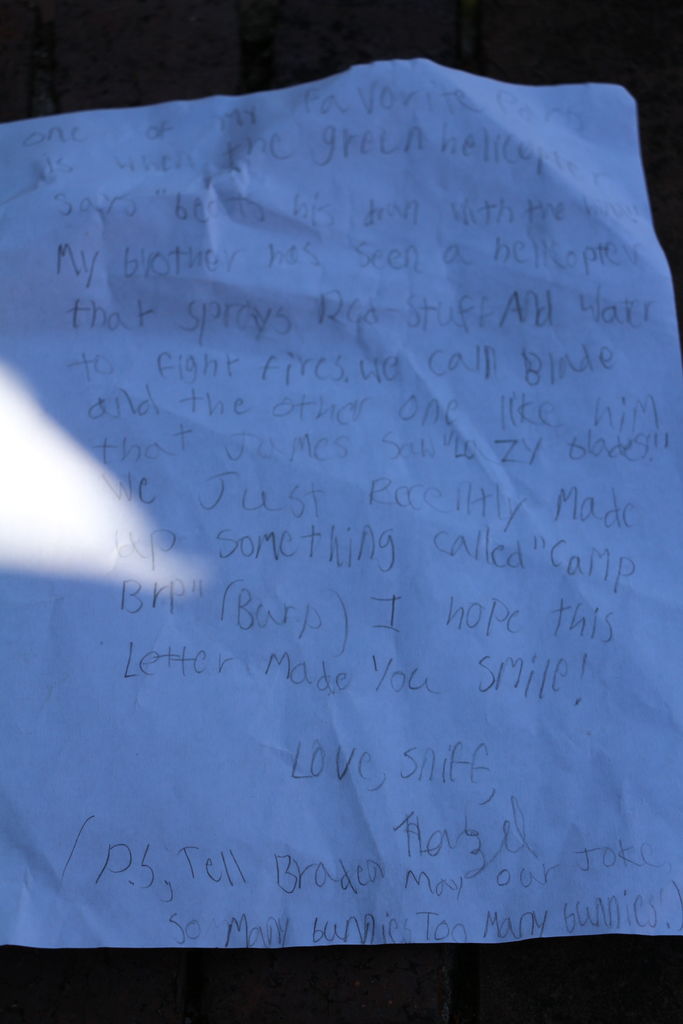 one of my Favorite Parts
is when the green helicopter
says "beats his drum with the
My brother has seen a helicopter
that sprays Red-stuff And Water
to fight fires. we call Blade
and the other one like him
that James saw "Lazy blades!"
We Just Recently Made
up something called "Camp
Brp" (Burp) I hope this
Letter Made You smile!
Love, Sniff,
Hazel
(P.S, Tell Braden May our Joke,
so Many bunnies Too Many bunnies!)